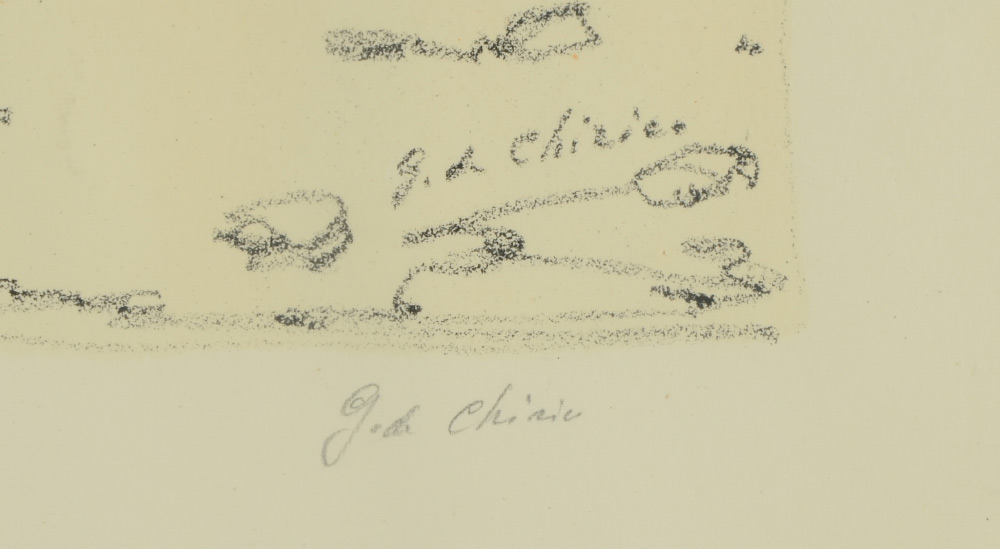 g. de Chirico
G. de Chirico